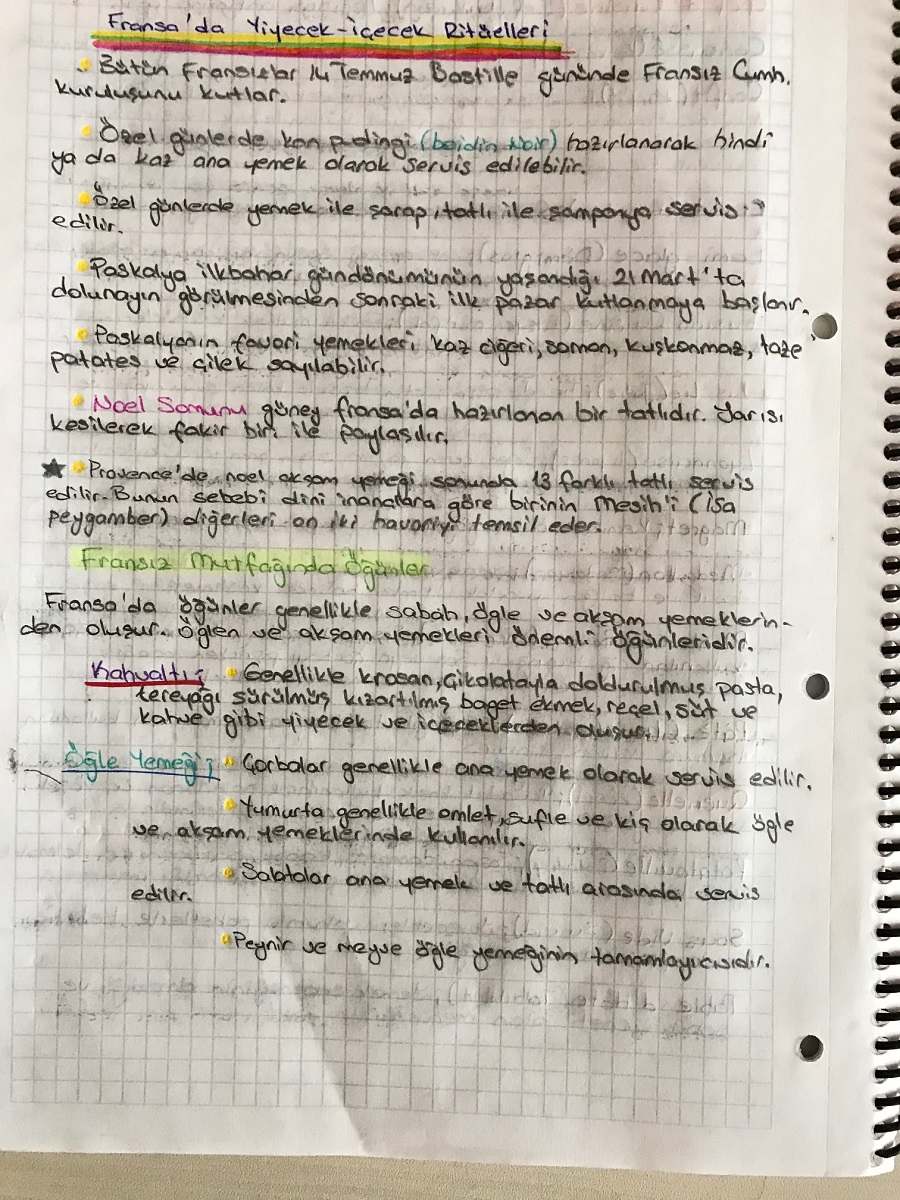 Fransa'da Yiyecek-içecek Ritüelleri
Bütün Fransızlar 14 Temmuz Bastille gününde Fransız Cumh.
kuruluşunu kutlar.
Özel günlerde kan pudingi (boidin Noir) hazırlanarak hindi
ya da kaz ana yemek olarak servis edilebilir.
Özel günlerde yemek ile şarap, tatlı ile şampanya servis
edilir.
Paskalya ilkbahar gündönümünün yaşandığı 21 Mart'ta
dolunayın görülmesinden sonraki ilk pazar kutlanmaya başlanır.
Paskalyanın favori yemekleri kaz ciğeri, somon, kuşkonmaz, taze
patates ve çilek sayılabilir.
Noel Somunu güney fransa'da hazırlanan bir tatlıdır. Yarısı
kesilerek fakir biri ile paylaşılır.
★ Provence'de noel akşam yemeği sonunda 13 farklı tatlı servis
edilir. Bunun sebebi dini inançlara göre birinin Mesih'i (İsa
peygamber) diğerleri on iki havariyi temsil eder.
Fransız Mutfağında Öğünler
Fransa'da öğünler genellikle sabah, öğle ve akşam yemeklerin-
den oluşur. Öğlen ve akşam yemekleri önemli öğünleridir.
Kahvaltı; Genellikle krosan, çikolatayla doldurulmuş pasta,
tereyağı sürülmüş kızartılmış baget ekmek, reçel, süt ve
kahve gibi yiyecek ve içeceklerden oluşur.
Öğle Yemeği; Çorbalar genellikle ana yemek olarak servis edilir.
Yumurta genellikle omlet, sufle ve kiş olarak öğle
ve akşam yemeklerinde kullanılır.
Salatalar ana yemek ve tatlı arasında servis
edilir.
Peynir ve meyve öğle yemeğinin tamamlayıcısıdır.